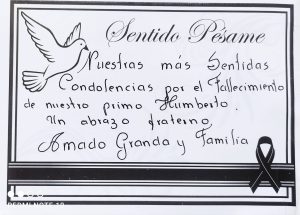 Sentido Pésame
Nuestras más Sentidas
Condolencias por el Fallecimiento
de nuestro primo Humberto.
Un abrazo fraterno,
Amado Granda y Familia
REDMI NOTE 10